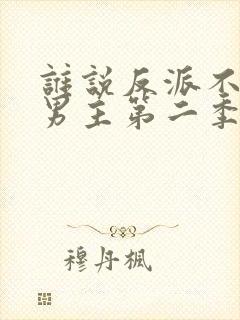 誰說反派不
男主第二季
穆丹楓